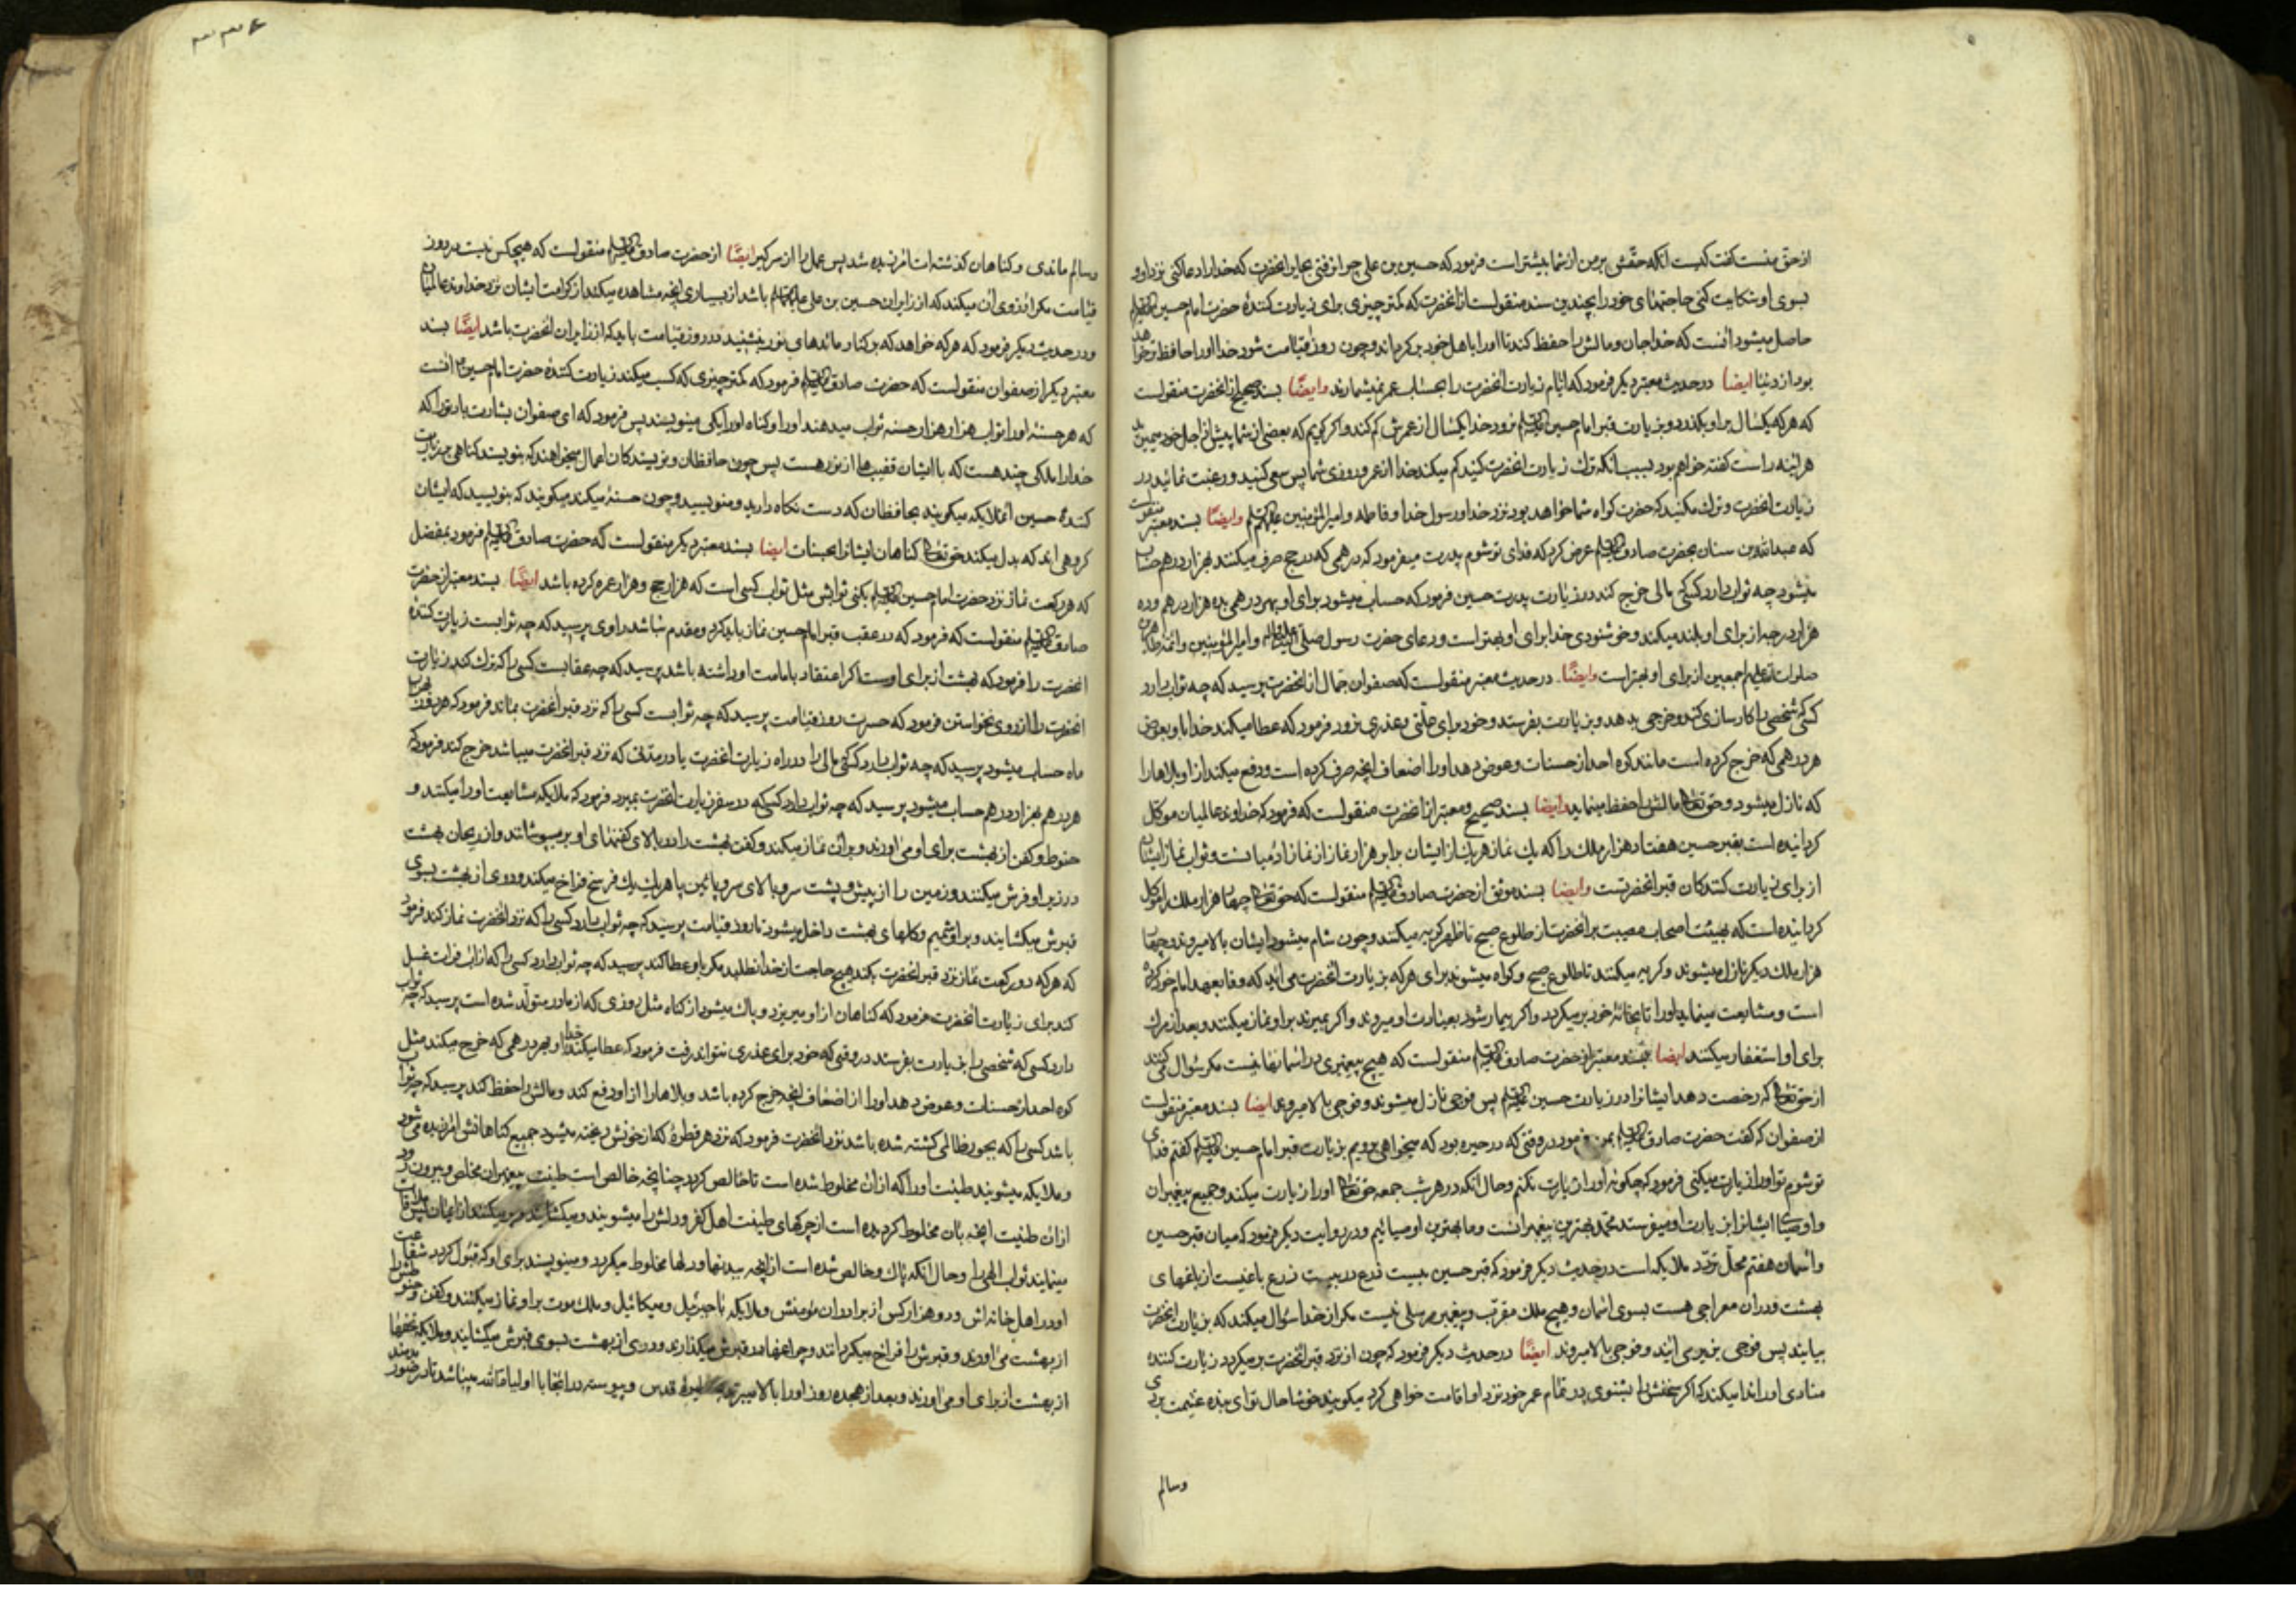 از حق منست گفت کیست آنکه حقش بر من از شما بیشتر است فرمود که حسین بن علی چرا نرفتی بحایر آنحضرت که خدا را دعا کنی نزد او و
بسوی او شکایت کنی حاجتهای خود را بچندین سند منقولست از آنحضرت که کمتر چیزی برای زیارت کنندهٔ حضرت امام حسین
حاصل میشود آنست که خدا جان و مالش را حفظ کند تا او را باهل خود برگرداند و چون روز قیامت شود خدا او را حافظ تر خواهد
بود از دنیا ایضا در حدیث معتبر دیگر فرمود که ایام زیارت آنحضرت را بحساب عمر نمیشمارند وایضًا بسند صحیح از آنحضرت منقولست
که هر که یکسال بر او بگذرد و بزیارت قبر امام حسین نرود خدا یکسال از عمرش کم کند و اگر گویم که بعضی از شما پیش از اجل خود میمیرید
هر اینه راست گفته خواهم بود بسبب آنکه ترک زیارت آنحضرت کنید کم میکند خدا از عمر و روزی شما پس سعی کنید و رغبت نمائید در
زیارت آنحضرت و ترک مکنید که حضرت گواه شما خواهد بود نزد خدا و رسول خدا و فاطمه و امیر المؤمنین وایضًا بسند معتبر منقولست
که عبدالله بن سنان بحضرت صادق عرض کرد که فدای تو شوم پدرت میفرمود که درهمی که در حج صرف میکنند هزار درهم حساب
میشود چه ثواب دارد کسی که مالی خرج کند در زیارت پدرت حسین فرمود که حساب میشود برای او بهر درهمی ده هزار درهم و ده
هزار درجه از برای او بلند میکند و خوشنودی خدا برای او بهتر است و دعای حضرت رسول صلی و امیر المؤمنین و ائمه طاهرین
صلوات الله علیهم اجمعین از برای او بهتر است وایضًا در حدیث معتبر منقولست که صفوان جمال از آنحضرت پرسید که چه ثواب دارد
کسی که شخصی را کارسازی کند و خرجی بدهد و بزیارت بفرستد و خود برای علتی و عذری نرود فرمود که عطا میکند خدا باو بعوض
هر درهمی که خرج کرده است مانند کوه احد از حسنات و عوض دهد او را اضعاف آنچه صرف کرده است و دفع میکند از او بلاها را
که نازل میشود و حقتعالی مالش را حفظ مینماید وایضا بسند صحیح و معتبر از آنحضرت منقولست که فرمود که خداوند عالمیان موکل
گردانیده است بقبر حسین هفتاد هزار ملک را که یک نماز هر یک از ایشان برابر هزار نماز از نماز آدمیانست و ثواب نماز ایشان
از برای زیارت کنندکان قبر آنحضرتست وایضا بسند موثق از حضرت صادق منقولست که حقتعالی چهار هزار ملک را موکل
گردانیده است که بهیئت اصحاب مصیبت بر آنحضرت از طلوع صبح تا ظهر گریه میکنند و چون شام میشود ایشان بالا میروند و چهار
هزار ملک دیگر نازل میشوند و گریه میکنند تا طلوع صبح و گواه میشوند برای هر که بزیارت آنحضرت می آید که وفا بعهد امام خود کرده
است و مشایعت مینمایند او را تا بخانهٔ خود برمیگردد و اگر بیمار شود بعیادت او میروند و اگر بمیرند بر او نماز میکنند و بعد از مرگ
برای او استغفار میکنند ایضا بسند معتبر از حضرت صادق منقولست که هیچ پیغمبری در آسمانها نیست مگر سؤال می کنند
از حقتعالی که رخصت دهد ایشانرا در زیارت حسین پس فوجی نازل میشوند و فوجی بالا میروند ایضا بسند معتبر منقولست
از صفوان که گفت حضرت صادق بمن فرمود در وقتی که در حیره بود که میخواهی برویم بزیارت قبر امام حسین گفتم فدای
تو شوم تو او را زیارت میکنی فرمود که چگونه او را زیارت نکنم و حال آنکه در هر شب جمعه حقتعالی او را زیارت میکند و جمیع پیغمبران
و اوصیا ایشانرا بزیارت او میفرستد محمد بهترین پیغمبرانست و ما بهترین اوصیائیم و در روایت دیگر فرمود که میان قبر حسین
و آسمان هفتم محل تردد ملایکه است در حدیث دیگر فرمود که قبر حسین بیست ذرع در بیست ذرع باغیست از باغهای
بهشت و در آن معراجی هست بسوی آسمان و هیچ ملک مقرب و پیغمبر مرسلی نیست مگر از خدا سؤال میکند که بزیارت آنحضرت
بیایند پس فوجی بزیر می آیند و فوجی بالا میروند ایضًا در حدیث دیگر فرمود که چون از نزد قبر آنحضرت برمیگردد زیارت کننده
منادی او را ندا میکند که اگر سخنش را بشنوی در تمام عمر خود نزد او اقامت خواهی کرد میگویند خوشا حال تو ای بنده غنیمت بردی
وسالم
وسالم ماندی و گناهان گذشته ات آمرزیده شد پس عمل را از سر گیر ایضًا از حضرت صادق منقولست که هیچکس نیست در روز
قیامت مگر آرزوی آن میکند که از زایران حسین بن علی باشد از بسیاری آنچه مشاهده میکند از کرامت ایشان نزد خداوند عالمیان
و در حدیث دیگر فرمود که هر که خواهد که بر کنار مائدهای نور بنشیند در روز قیامت باید که از زایران آنحضرت باشد ایضًا بسند
معتبر دیگر از صفوان منقولست که حضرت صادق فرمود که کمتر چیزی که کسب میکند زیارت کنندهٔ حضرت امام حسین آنست
که هر حسنهٔ او را ثواب هزار هزار حسنه ثواب میدهند او را و گناه او را یکی مینویسند پس فرمود که ای صفوان بشارت باد تو را که
خدا را ملکی چند هست که با ایشان قضیبها از نور هست پس چون حافظان و نویسندکان اعمال میخواهند که بنویسند گناهی بر زیارت
کنندهٔ حسین آن ملایکه میگویند بحافظان که دست نگاه دارید و منویسید و چون حسنهٔ میکند میگویند که بنویسید که ایشان
گروهی اند که بدل میکند حقتعالی گناهان ایشانرا بحسنات ایضا بسند معتبر دیگر منقولست که حضرت صادق فرمود بمفضل
که هر رکعت نماز نزد حضرت امام حسین بکنی ثوابش مثل ثواب کسی است که هزار حج و هزار عمره کرده باشد ایضًا بسند معتبر از حضرت
صادق منقولست که فرمود که در عقب قبر امام حسین نماز باید کرد و مقدم نباشد راوی پرسید که چه ثوابست زیارت کنندهٔ
آنحضرت را فرمود که بهشت از برای اوست اگر اعتقاد بامامت او داشته باشد پرسید که چه عقابست کسی را که ترک کند زیارت
آنحضرت را از روی نخواستن فرمود که حسرت روز قیامت پرسید که چه ثوابست کسی را که نزد قبر آنحضرت بماند فرمود که هر روزی بهزار
ماه حساب میشود پرسید که چه ثواب دارد کسی مالی را در راه زیارت آنحضرت یا در مدتی که نزد قبر آنحضرت میباشد خرج کند فرمود که
هر درهم بهزار درهم حساب میشود پرسید که چه ثواب دارد کسی که در سفر زیارت آنحضرت بمیرد فرمود که ملایکه مشایعت او را میکنند و
حنوط و کفن از بهشت برای او می آورند و بر آن نماز میکنند و کفن بهشت را در بالای کفنهای او بر میپوشانند و از ریحان بهشت
در زیر او فرش میکنند و زمین را از پیش و پشت سر و بالای سر و پائین پا هر یک یک فرسخ فراخ میکند و دری از بهشت بسوی
قبرش میگشایند و بر او شمیم و گلهای بهشت داخل میشود تا روز قیامت پرسید که چه ثواب دارد کسی را که نزد آنحضرت نماز کند فرمود
که هر که دو رکعت نماز نزد قبر آنحضرت بکند هیچ حاجت از خدا نطلبد مگر باو عطا کند پرسید که چه ثواب دارد کسی را که از آب فرات غسل
کند برای زیارت آنحضرت فرمود که گناهان از او میریزد و پاک میشود از گناه مثل روزی که از مادر متولد شده است پرسید که چه ثواب
دارد کسی که شخصی را بزیارت بفرستد در وقتی که خود برای عذری نتواند رفت فرمود که عطا میکند خدا او بهر درهمی که خرج میکند مثل
کوه احد از حسنات و عوض دهد او را از اضعاف آنچه خرج کرده باشد و بلاها را از او رفع کند و مالش را حفظ کند پرسید که چه ثواب
باشد کسی را که بجور ظالمی کشته شده باشد نزد آنحضرت فرمود که نزد هر قطرهٔ که از خونش ریخته میشود جمیع گناهانش آمرزیده می شود
و ملایکه میشویند طینت او را که از آن مخلوط شده است تا خالص گردد چنانچه خالص است طینت پیغمبران مخلص و بیرون رود
از آن طینت آنچه بآن مخلوط گردیده است از چرکهای طینت اهل کفر و دلش را میشویند و میگشایند و پر میکنند از ایمان پس ملاقات
مینمایند ثواب الهی را و حال آنکه پاک و خالص شده است از آنچه ببدنها و دلها مخلوط میگردد و مینویسند برای او که قبول گردد شفاعت
او در اهل خانه اش و در هزار کس از برادران مؤمنش و ملایکه با جبرئیل و میکائیل و ملک موت بر او نماز میکنند و کفن و حنوطش را
از بهشت می آورند و قبرش را فراخ میگردانند و چراغها در قبرش میگذارند و دری از بهشت بسوی قبرش میگشایند و ملایکه تحفها
از بهشت از برای او می آورند و بعد از هجده روز او را بالا میبرند قدس و پیوسته در آنجا با اولیاء الله میباشد تا در صور بدمند